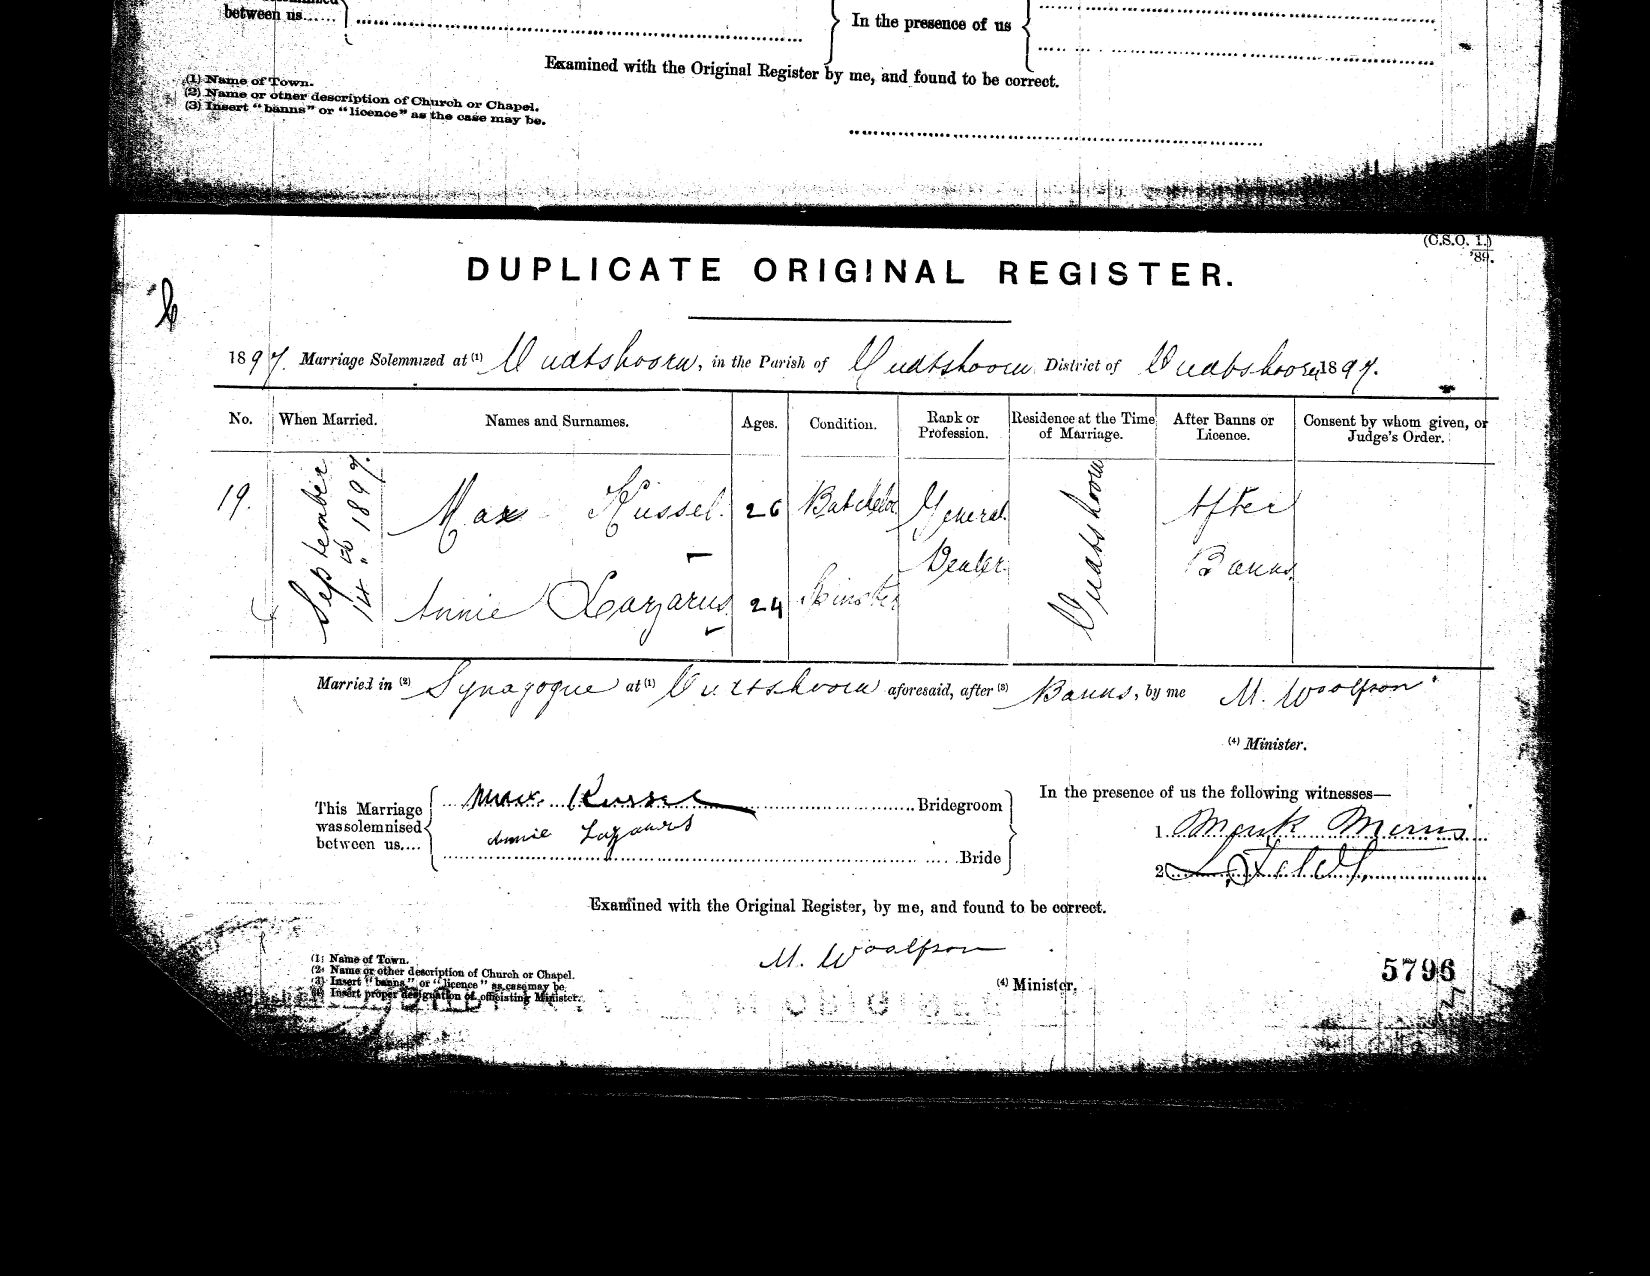 between us......
In the presence of us
Examined with the Original Register by me, and found to be correct.
(1) Name of Town.
(2) Name or other description of Church or Chapel.
(3) Insert "banns" or "licence" as the case may be.
(C.S.O. 1.)
'89.
DUPLICATE ORIGINAL REGISTER.
1897. Marriage Solemnized at (1) Oudtshoorn, in the Parish of Oudtshoorn District of Oudtshoorn 1897.
No. When Married. Names and Surnames. Ages. Condition. Rank or Profession. Residence at the Time of Marriage. After Banns or Licence. Consent by whom given, or Judge's Order.
19. September 14th 1897. Max Kussel. 26 Batchelor General Dealer Oudtshoorn After Banns
Annie Lazarus 24 Spinster
Married in (2) Synagogue at (1) Oudtshoorn aforesaid, after (3) Banns, by me M. Woolfson
(4) Minister.
This Marriage was solemnised between us....
Max Kussel Bridegroom
Annie Lazarus
Bride
In the presence of us the following witnesses—
1.
2
Examined with the Original Register, by me, and found to be correct.
M. Woolfson
(4) Minister.
(1) Name of Town.
(2) Name or other description of Church or Chapel.
(3) Insert "banns" or "licence" as case may be.
(4) Insert proper designation of officiating Minister.
5796